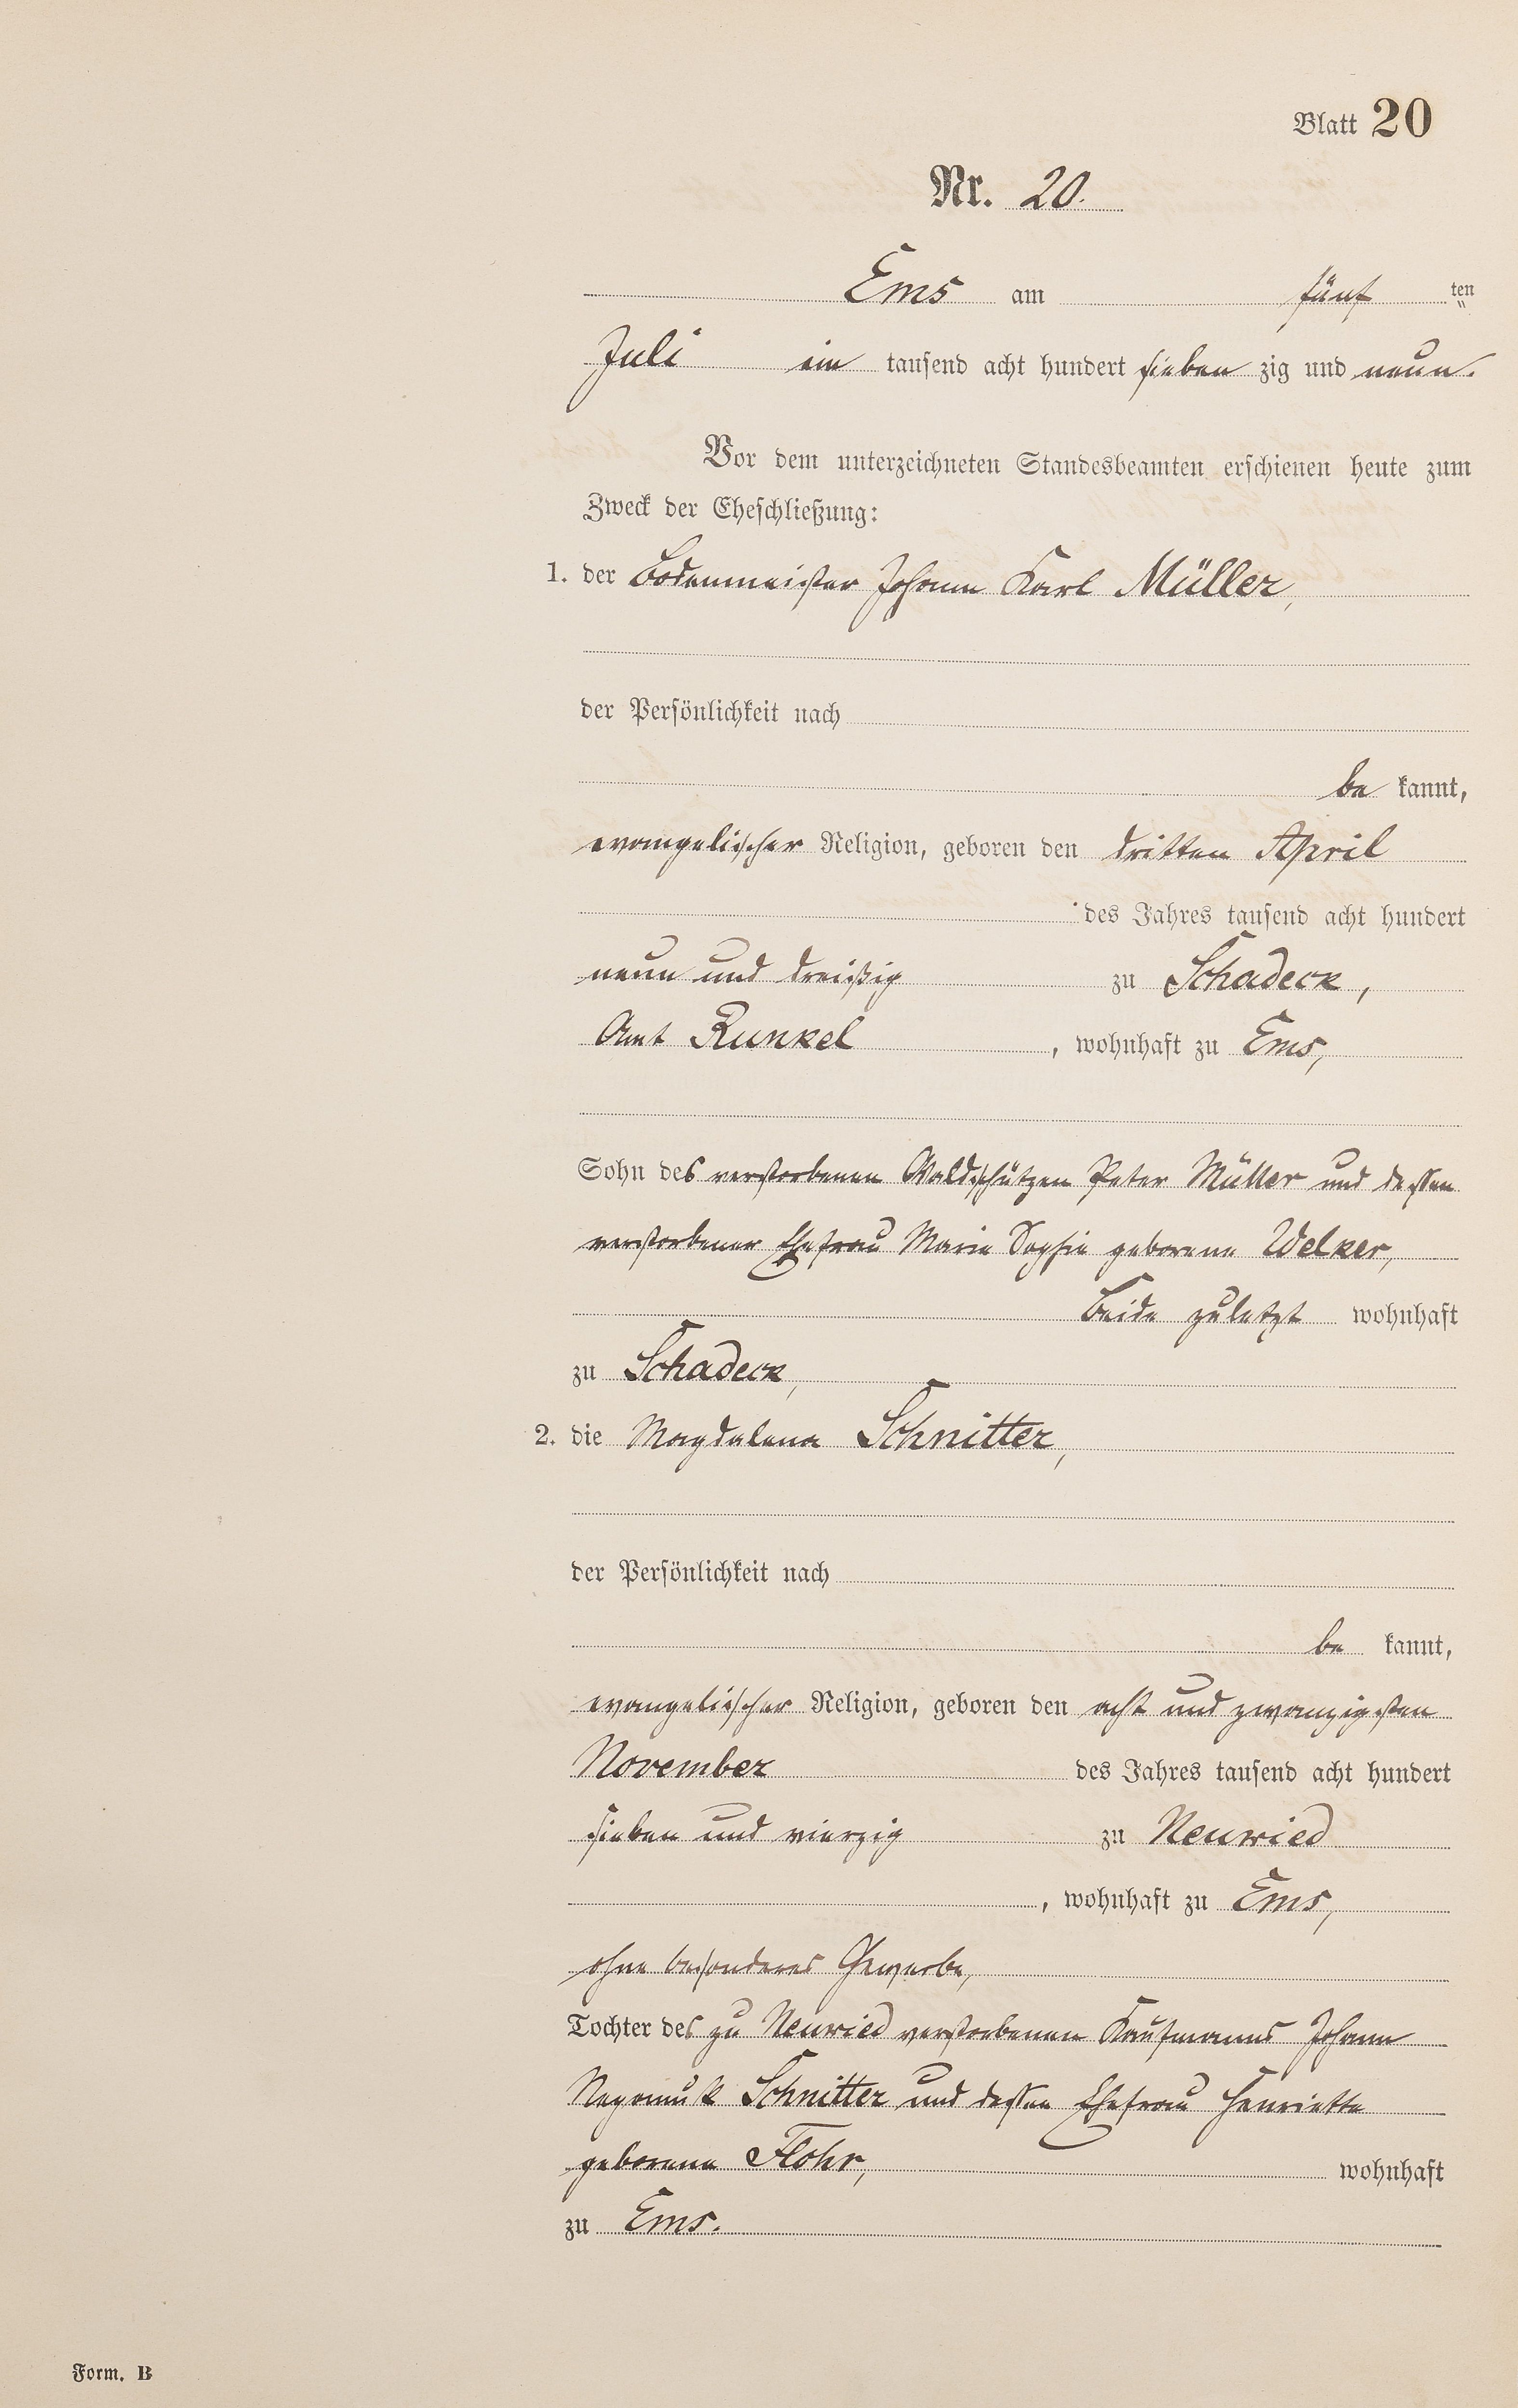 Blatt 20
Nr. 20.
Ems am fünf ten
Juli ein tausend acht hundert sieben zig und neun.
Vor dem unterzeichneten Standesbeamten erschienen heute zum
Zweck der Eheschließung:
1. der Bodenmeister Johann Karl Müller,
der Persönlichkeit nach
be kannt,
evangelischer Religion, geboren den dritten April
des Jahres tausend acht hundert
neun und dreißig zu Schadeck,
Amt Runkel, wohnhaft zu Ems,
Sohn des verstorbenen Waldschützen Peter Müller und dessen
verstorbener Ehefrau Marie Sophie geborene Welker,
Beide zuletzt wohnhaft
zu Schadeck,
2. die Magdalena Schnitter,
der Persönlichkeit nach
be kannt,
evangelischer Religion, geboren den acht und zwanzigsten
November des Jahres tausend acht hundert
sieben und vierzig zu Neuwied
, wohnhaft zu Ems,
ohne besonderes Gewerbe,
Tochter des zu Neuwied verstorbenen Kaufmanns Johann
Nepomuk Schnitter und dessen Ehefrau Henriette
geborene Flohr, wohnhaft
zu Ems.
Form. B